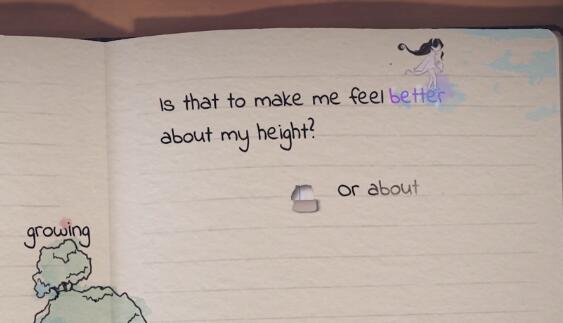 Is that to make me feel better
about my height?
or about
growing